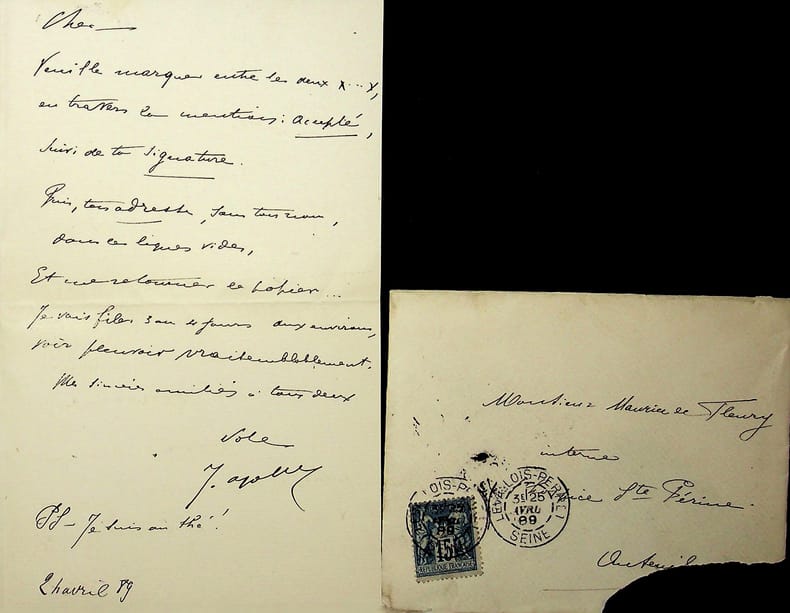 Cher
Veuille marquer entre les deux X...X,
en travers la mention : accepté,
suivi de ta signature.
Puis, ton adresse, sous ton nom,
dans les lignes vides,
Et me retourner le papier...
Je vais filer 3 ou 4 jours aux environs,
voir pleuvoir vraisemblablement.
Mes sincères amitiés à tous deux
PS - Je suis au thé !
avril 89
Monsieur Maurice de Fleury
interne
Ste Périne.
Auteuil
LEVALLOIS-PERRET
AVRIL
89
SEINE
15
REPUBLIQUE FRANCAISE